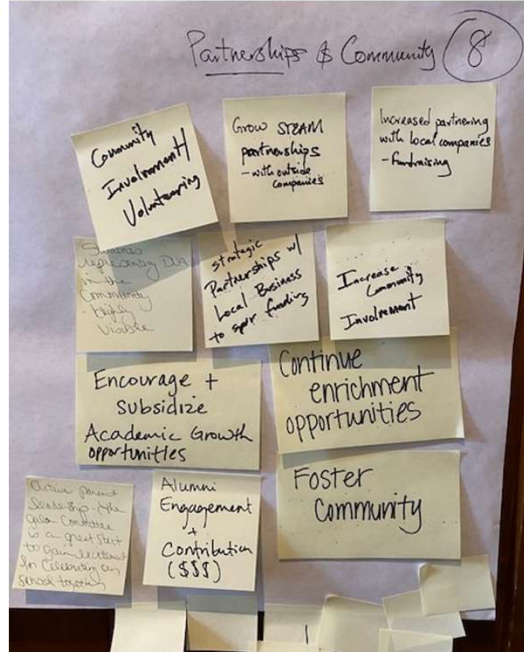 Partnerships & Community 8
Community
Involvement/
Volunteering
Grow STEAM
partnerships
- with outside
companies
Increased partnering
with local companies
- Fundraising
representing
in the
Community
Highly
Visible
Strategic
Partnerships w/
Local Business
to spur funding
Increase
Community
Involvement
Encourage +
Subsidize
Academic Growth
opportunities
Continue
enrichment
opportunities
Active Parent
leadership - the
Gala Committee
is a great start
to gain excitement
in Celebrating our
school together
Alumni
Engagement
+
Contribution
($$$)
Foster
Community